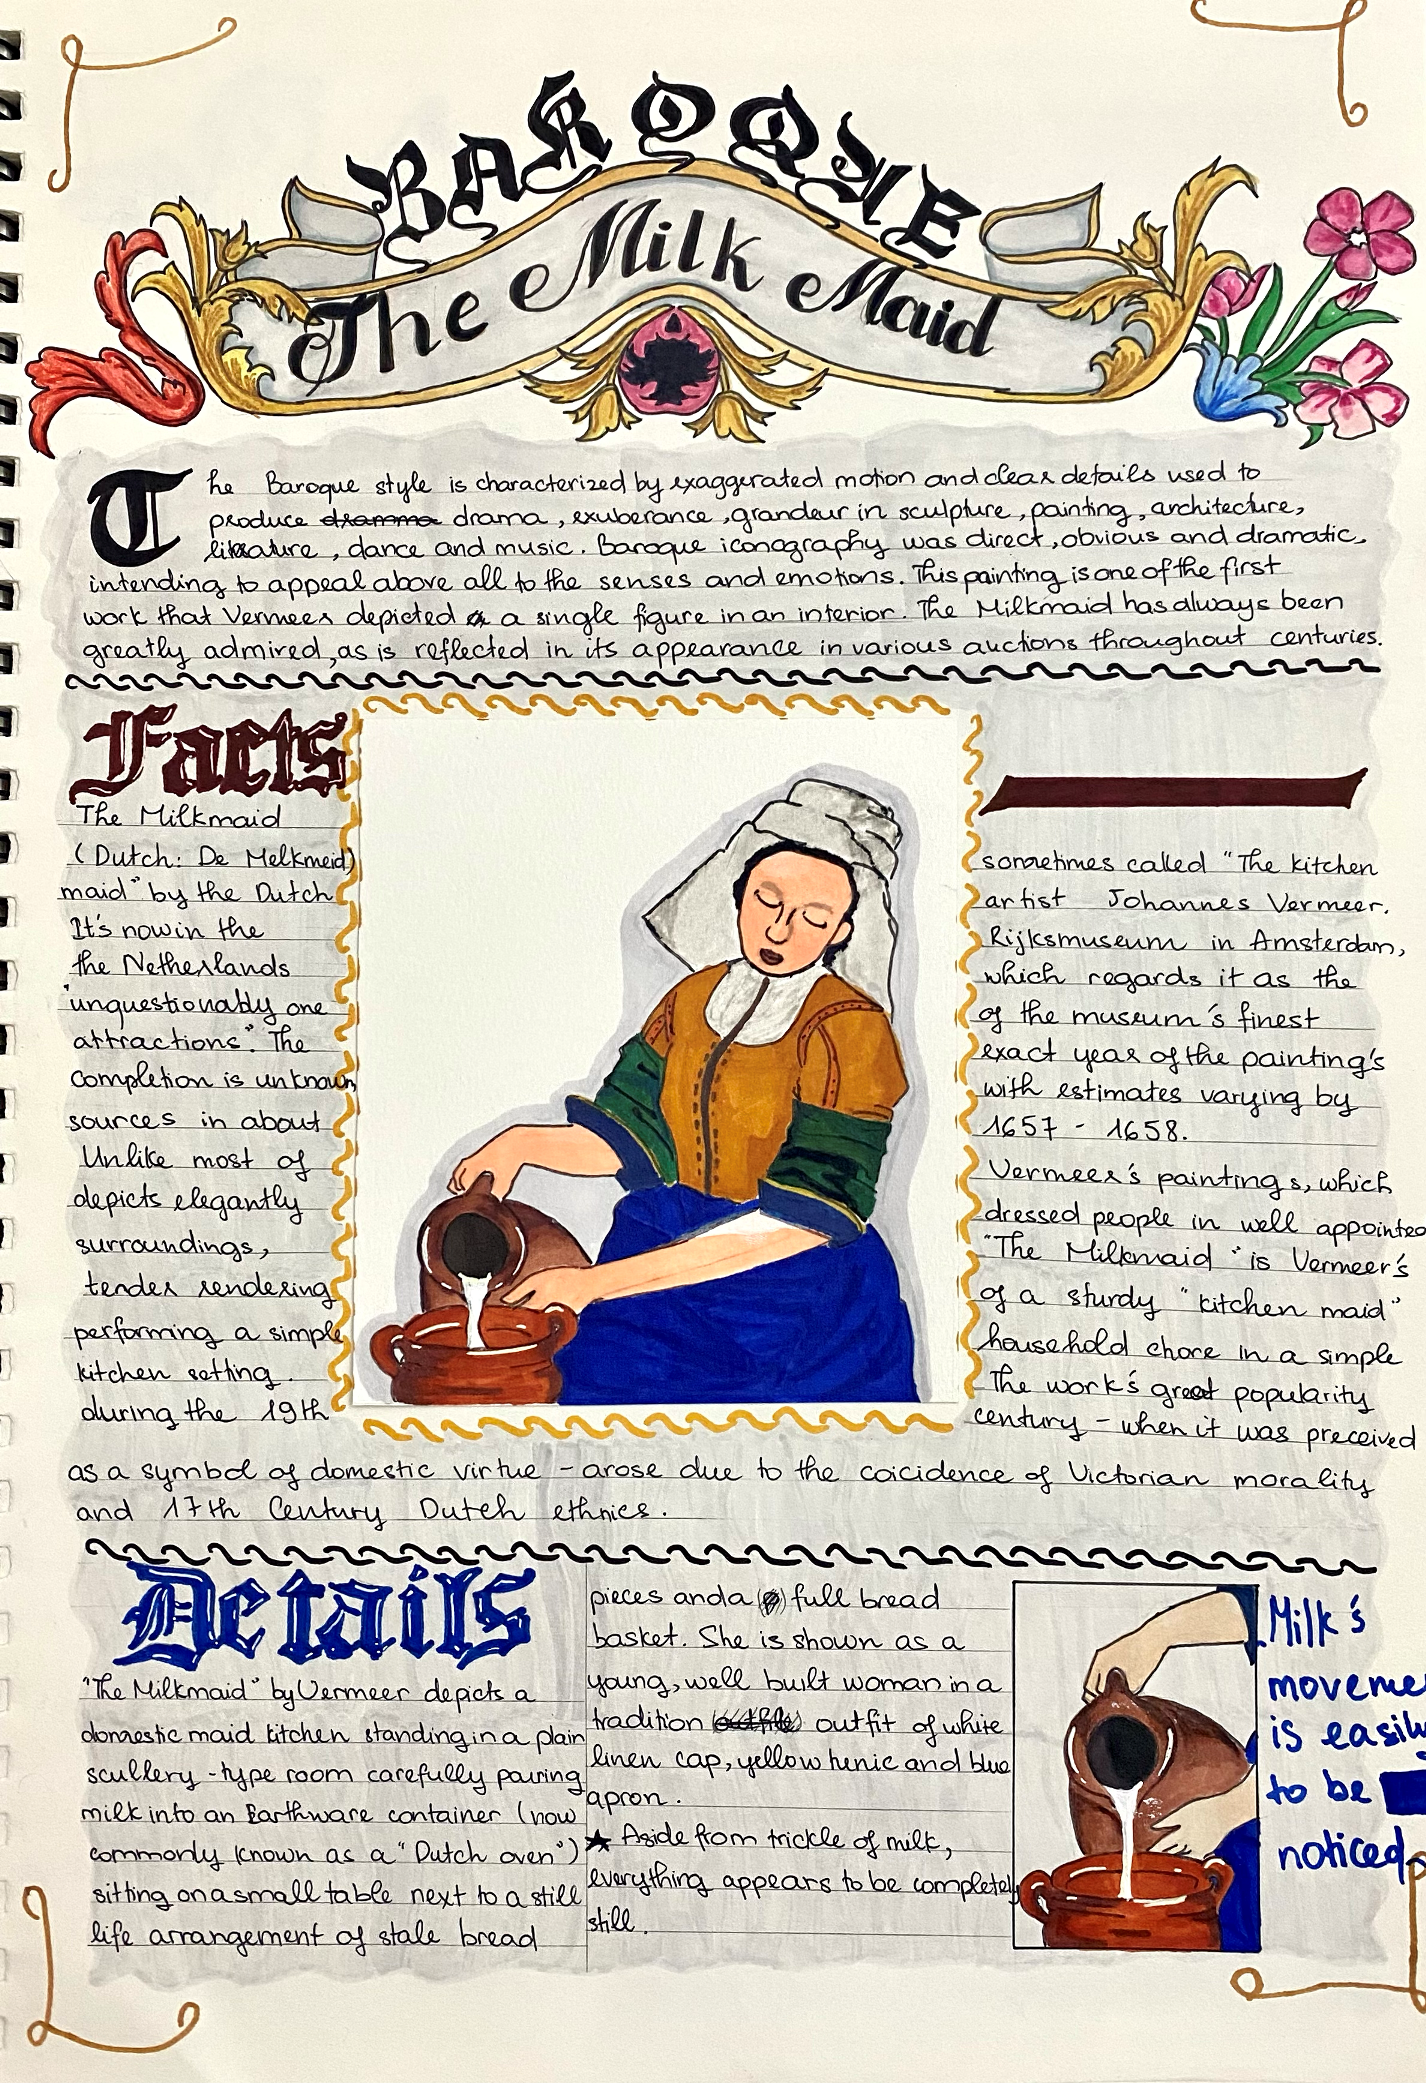 BAROQUE
The Milk Maid
The Baroque style is characterized by exaggerated motion and clear details used to
produce dramma drama, exuberance, grandeur in sculpture, painting, architecture,
literature, dance and music. Baroque iconography was direct, obvious and dramatic,
intending to appeal above all to the senses and emotions. This painting is one of the first
work that Vermeer depicted a single figure in an interior. The Milkmaid has always been
greatly admired, as is reflected in its appearance in various auctions throughout centuries.
Facts
The Milkmaid
(Dutch: De Melkmeid) sometimes called "The kitchen
maid" by the Dutch artist Johannes Vermeer.
It's now in the Rijksmuseum in Amsterdam,
the Netherlands which regards it as the
"unquestionably one of the museum's finest
attractions". The exact year of the painting's
completion is unknown, with estimates varying by
sources in about 1657 - 1658.
Unlike most of Vermeer's paintings, which
depicts elegantly dressed people in well appointed
surroundings, "The Milkmaid" is Vermeer's
tender rendering of a sturdy "kitchen maid"
performing a simple household chore in a simple
kitchen setting. The work's great popularity
during the 19th century - when it was preceived
as a symbol of domestic virtue - arose due to the coicidence of Victorian morality
and 17th Century Dutch ethnics.
Details
"The Milkmaid" by Vermeer depicts a
domestic maid kitchen standing in a plain
scullery - type room carefully pouring
milk into an Earthware container (now
commonly known as a "Dutch oven")
sitting on a small table next to a still
life arrangement of stale bread
pieces and a full bread
basket. She is shown as a
young, well built woman in a
tradition outfit of white
linen cap, yellow tunic and blue
apron.
★ Aside from trickle of milk,
everything appears to be completely
still.
Milk's
moveme
is easily
to be
noticed.